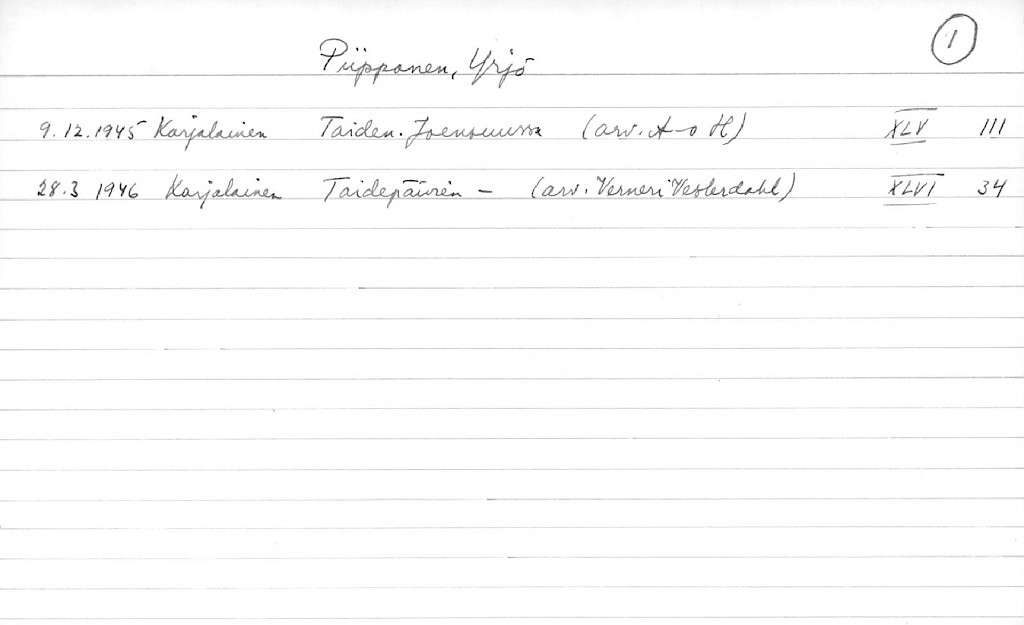 1
Piipponen, Yrjö
9.12.1945 Karjalainen Taiden. Joensuussa (arv. A-o H) XLV 111
28.3 1946 Karjalainen Taidepäivien — (arv. Verneri Vesterdahl) XLVI 34